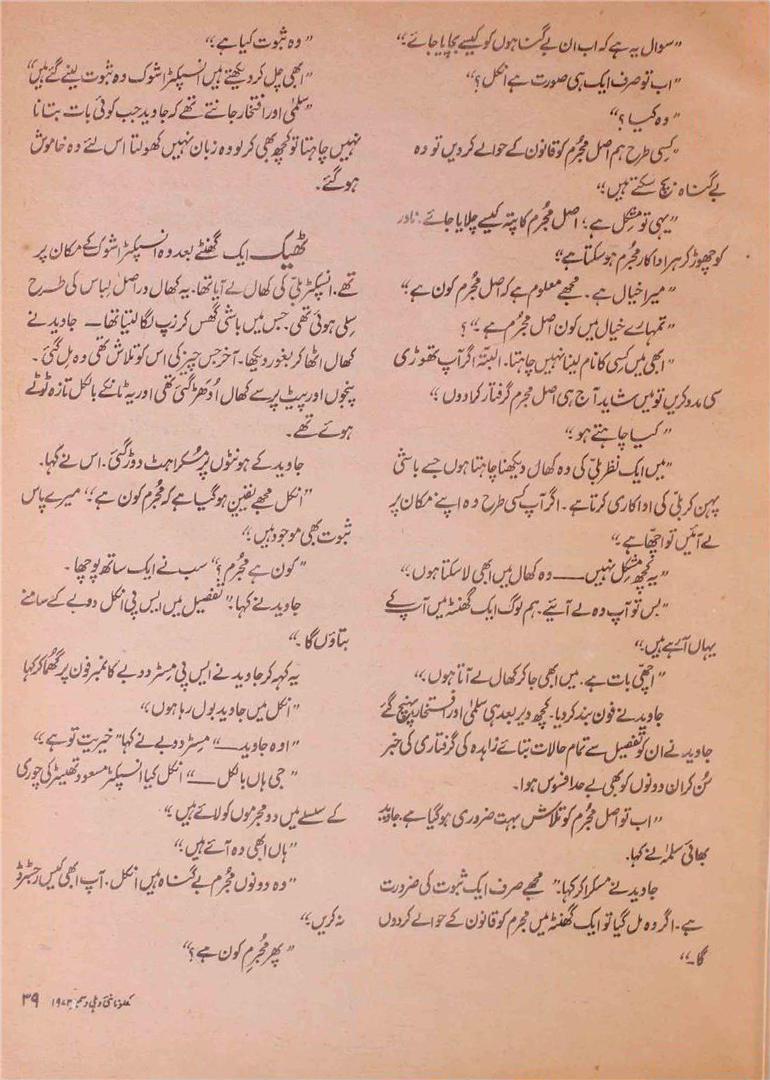 ”سوال یہ ہے کہ اب ان بے گناہوں کو کیسے بچایا جائے۔“
”اب تو صرف ایک ہی صورت ہے انکل؟“
”وہ کیا؟“
”کسی طرح ہم اصل مجُرم کو قانون کے حوالے کر دیں تو وہ
بے گناہ بچ سکتے ہیں؛“
”یہی تو مشکل ہے؛ اصل مجُرم کا پتہ کیسے چلایا جائے۔ نادر
کو چھوڑ کر ہر اداکار مجُرم ہو سکتا ہے“
”میرا خیال ہے۔ مجھے معلوم ہے کہ اصل مجُرم کون ہے؛“
”تمہارے خیال میں کون اصل مجُرم ہے۔“؟
”ابھی میں کسی کا نام لینا نہیں چاہتا۔ البتّہ اگر آپ تھوڑی
سی مدد کریں تو میں شاید آج ہی اصل مجُرم گرفتار کرا دوں؛“
”کیا چاہتے ہو؛“
”میں ایک نظر بلّی کی وہ کھال دیکھنا چاہتا ہوں جسے باشی
پہن کر بلّی کی اداکاری کرتا ہے۔ اگر آپ کسی طرح وہ اپنے مکان پر
لے آئیں تو اچھّا ہے۔“
”یہ کچھ مشکل نہیں —— وہ کھال میں ابھی لا سکتا ہوں؛“
”بس تو آپ وہ لے آیئے۔ ہم لوگ ایک گھنٹہ میں آپ کے
یہاں آ رہے ہیں؛“
”اچھّی بات ہے۔ میں ابھی جا کر کھال لے آتا ہوں؛“
جاوید نے فون بند کر دیا۔ کچھ دیر بعد ہی سلمیٰ اور افتخار پہنچ گئے
جاوید نے ان کو تفصیل سے تمام حالات بتائے زاہدہ کی گرفتاری کی خبر
سُن کر ان دونوں کو بھی بے حد افسوس ہوا۔
”اب تو اصل مجُرم کو تلاش بہت ضروری ہو گیا ہے۔ جاوید
بھائی سلمیٰ نے کہا۔
جاوید نے مسکرا کر کہا۔ ”مجھے صرف ایک ثبوت کی ضرورت
ہے۔ اگر وہ مل گیا تو ایک گھنٹہ میں مجرم کو قانون کے حوالے کر دوں
گا۔“
”وہ ثبوت کیا ہے؛“
”ابھی چل کر دیکھتے ہیں انسپکٹر اشوک وہ ثبوت لینے گئے ہیں“
”سلمیٰ اور افتخار جانتے تھے کہ جاوید جب کوئی بات بتانا
نہیں چاہتا تو کچھ بھی کر لو وہ زبان نہیں کھولتا اس لئے وہ خاموش
ہو گئے۔
ٹھیک ایک گھنٹے بعد وہ انسپکٹر اشوک کے مکان پر
تھے۔ انسپکٹر بلّی کی کھال لے آیا تھا۔ یہ کھال در اصل لباس کی طرح
سِلی ہوئی تھی۔ جس میں باشی گھس کر زِپ لگا لیتا تھا — جاوید نے
کھال اٹھا کر بغور دیکھا۔ آخر جس چیز کی اس کو تلاش تھی وہ مِل گئی۔
پنجوں اور پیٹ پر سے کھال اُدھڑ گئی تھی اور یہ ٹانکے بالکل تازہ ٹوٹے
ہوئے تھے۔
جاوید کے ہونٹوں پر مُسکراہٹ دوڑ گئی۔ اس نے کہا۔
”انکل مجھے یقین ہو گیا ہے کہ مجُرم کون ہے۔“ میرے پاس
ثبوت بھی موجود ہیں؛“
”کون ہے مجُرم؟“ سب نے ایک ساتھ پوچھا۔
جاوید نے کہا: ”تفصیل میں ایس پی انکل دوبے کے سامنے
بتاؤں گا۔“
یہ کہہ کر جاوید نے ایس پی مسٹر دوبے کا نمبر فون پر گھُما کر کہا
”انکل میں جاوید بول رہا ہوں“
”اوہ جاوید —“ مسٹر دوبے نے کہا ”خیریت تو ہے؛“
”جی ہاں بالکل —“ انکل کیا انسپکٹر مسعود تھیٹر کی چوری
کے سلسلے میں دو مجرموں کو لائے ہیں؛“
”ہاں ابھی وہ آئے ہیں؛“
”وہ دونوں مجُرم بے گناہ ہیں انکل۔ آپ ابھی کیس رجسٹرڈ
نہ کریں؛“
”پھر مجُرم کون ہے؟“
۳۹